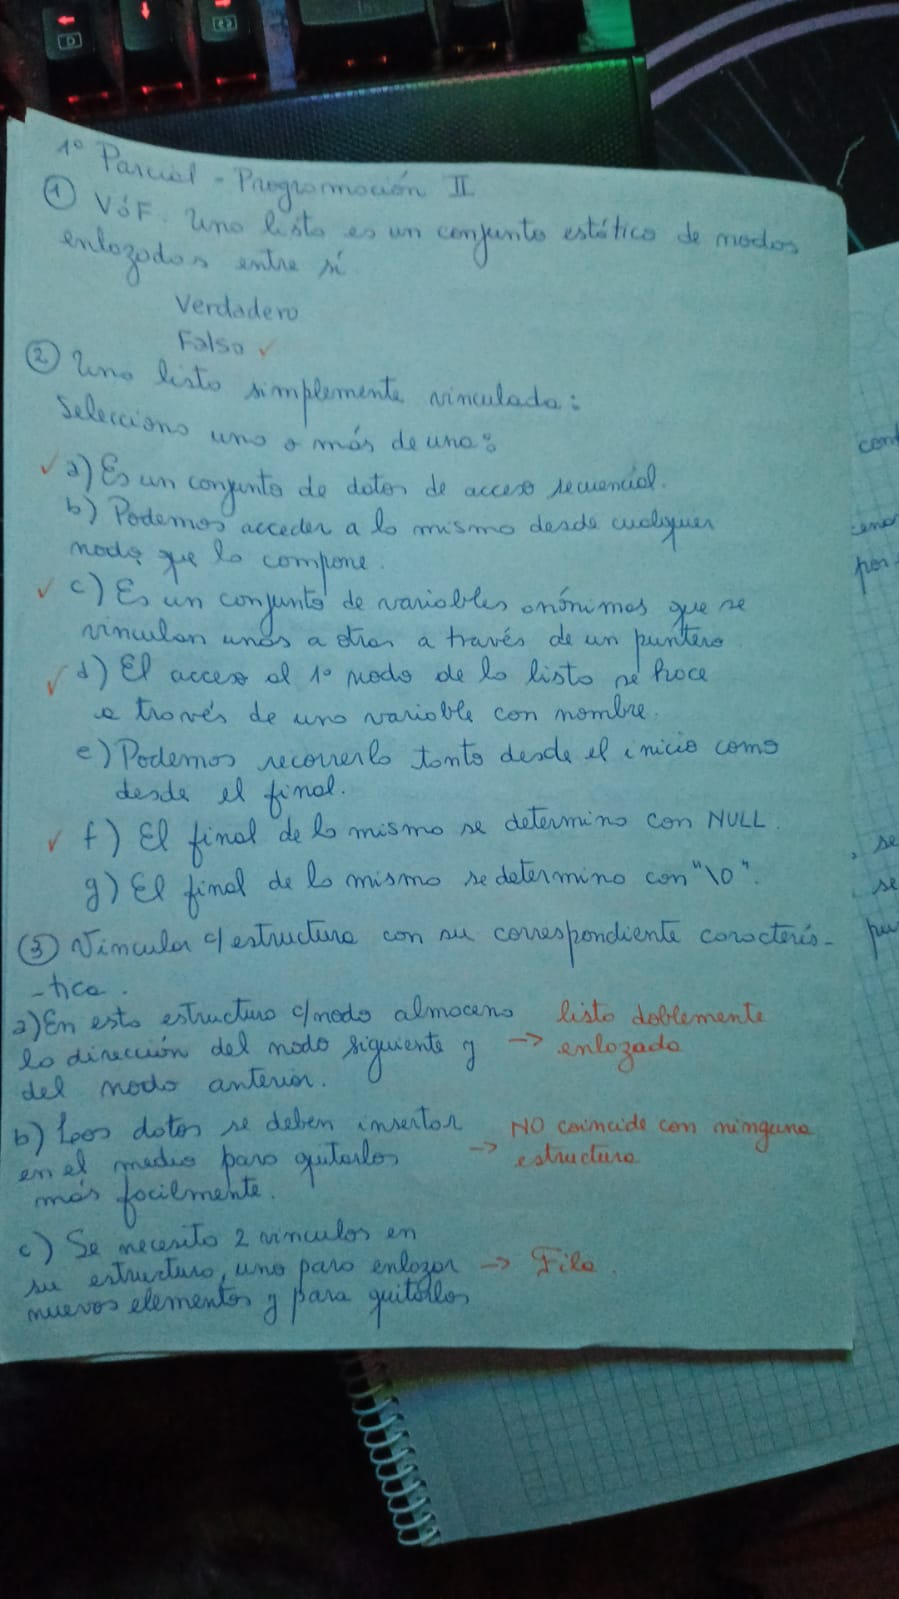 1º Parcial - Programación II
① VóF. Una lista es un conjunto estático de nodos
enlazados entre sí
Verdadero
Falso ✓
② Una lista simplemente vinculada:
Selecciona una o más de una:
✓ a) Es un conjunto de datos de acceso secuencial.
b) Podemos acceder a la misma desde cualquier
nodo que la compone.
✓ c) Es un conjunto de variables anónimas que se
vinculan unas a otras a través de un puntero
✓ d) El acceso al 1º nodo de la lista se hace
a través de una variable con nombre.
e) Podemos recorrerla tanto desde el inicio como
desde el final.
✓ f) El final de la misma se determina con NULL.
g) El final de la misma se determina con "\0".
③ Vincular c/estructura con su correspondiente caracterís-
-tica.
a) En esta estructura c/nodo almacena
la dirección del nodo siguiente y
del nodo anterior.
→ lista doblemente
enlazada
b) Los datos se deben insertar
en el medio para quitarlos
más facilmente.
→ NO coincide con ninguna
estructura
c) Se necesita 2 vinculos en
su estructura, uno para enlazar
nuevos elementos y para quitarlos
→ Fila.
cont
por
, se
, se